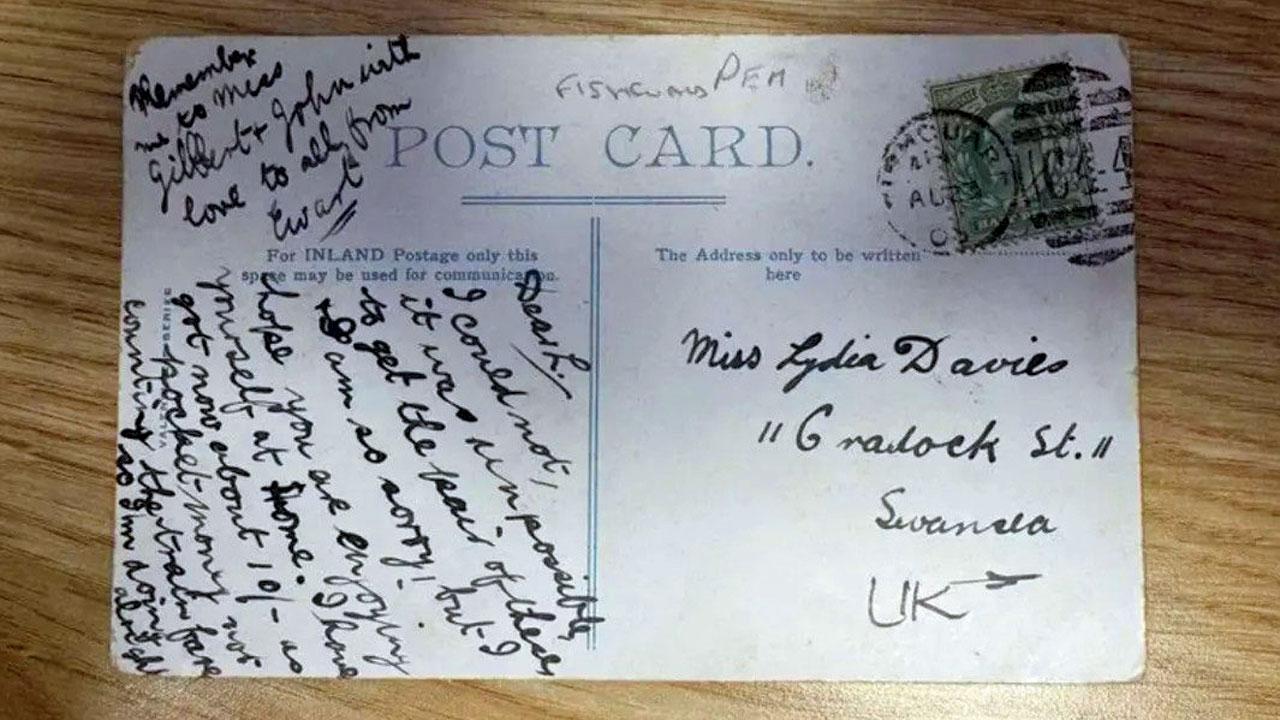 Remember
me to Miss
Gilbert + John with
love to all from
Ewart
FISHGUARD PEM
POST CARD.
For INLAND Postage only this
space may be used for communication.
The Address only to be written
here
Dear L,
I could not,
it was impossible,
to get the pair of these
I am so sorry, but I
hope you are enjoying
yourself at home. I have
got now about 10/- as
pocket-money not
counting the train fare
so I'm doing
alright
Miss Lydia Davies
"Cradock St."
Swansea
UK
AU